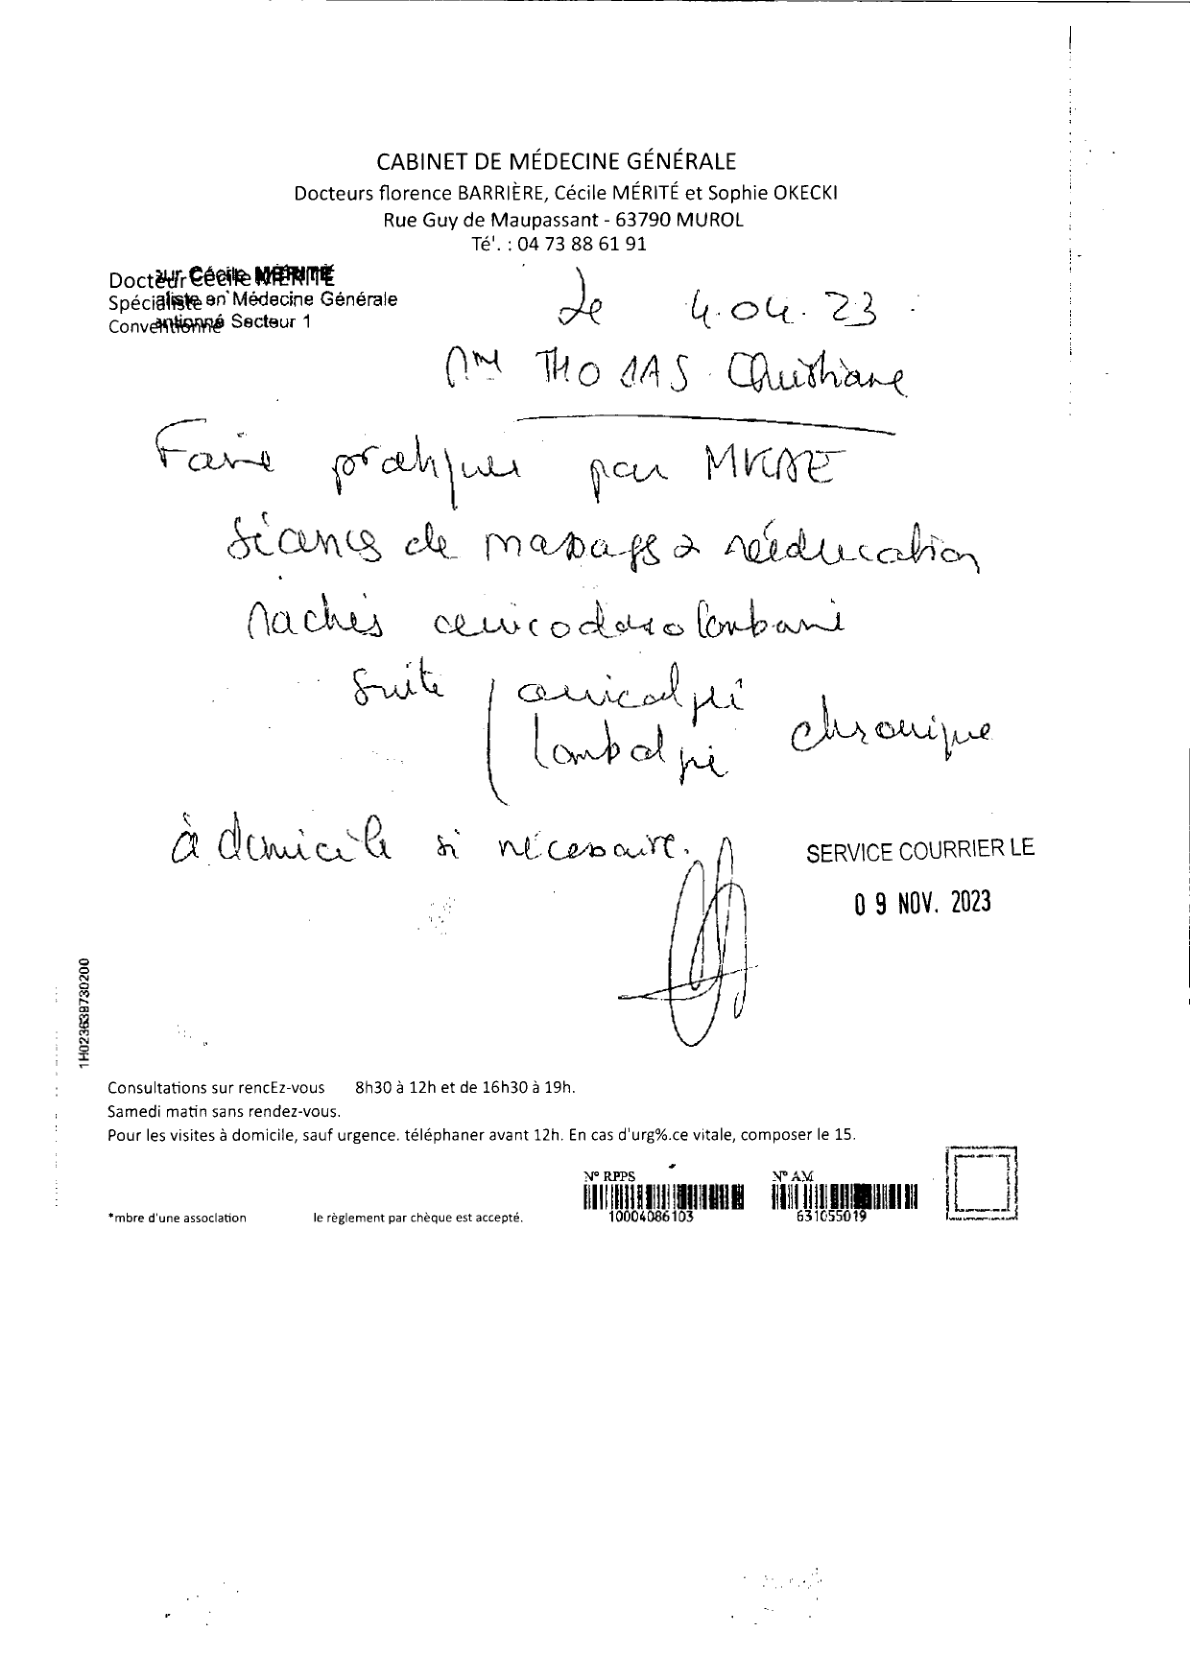 CABINET DE MÉDECINE GÉNÉRALE
Docteurs florence BARRIÈRE, Cécile MÉRITÉ et Sophie OKECKI
Rue Guy de Maupassant - 63790 MUROL
Té'. : 04 73 88 61 91
Docteur Cécile MÉRITÉ
Spécialiste en Médecine Générale
Conventionné Secteur 1
Le 4.04.23
Mme THOMAS Christiane
Faire pratiquer par MKDE
séances de massages & rééducation
rachis cervicodorsolombaire
suite cervicalgie
lombalgie chronique
à domicile si nécessaire.
SERVICE COURRIER LE
09 NOV. 2023
1H023639730200
Consultations sur rencEz-vous 8h30 à 12h et de 16h30 à 19h.
Samedi matin sans rendez-vous.
Pour les visites à domicile, sauf urgence. téléphaner avant 12h. En cas d'urg%.ce vitale, composer le 15.
N° RPPS N° AM
10004086103 631055019
*mbre d'une association le règlement par chèque est accepté.